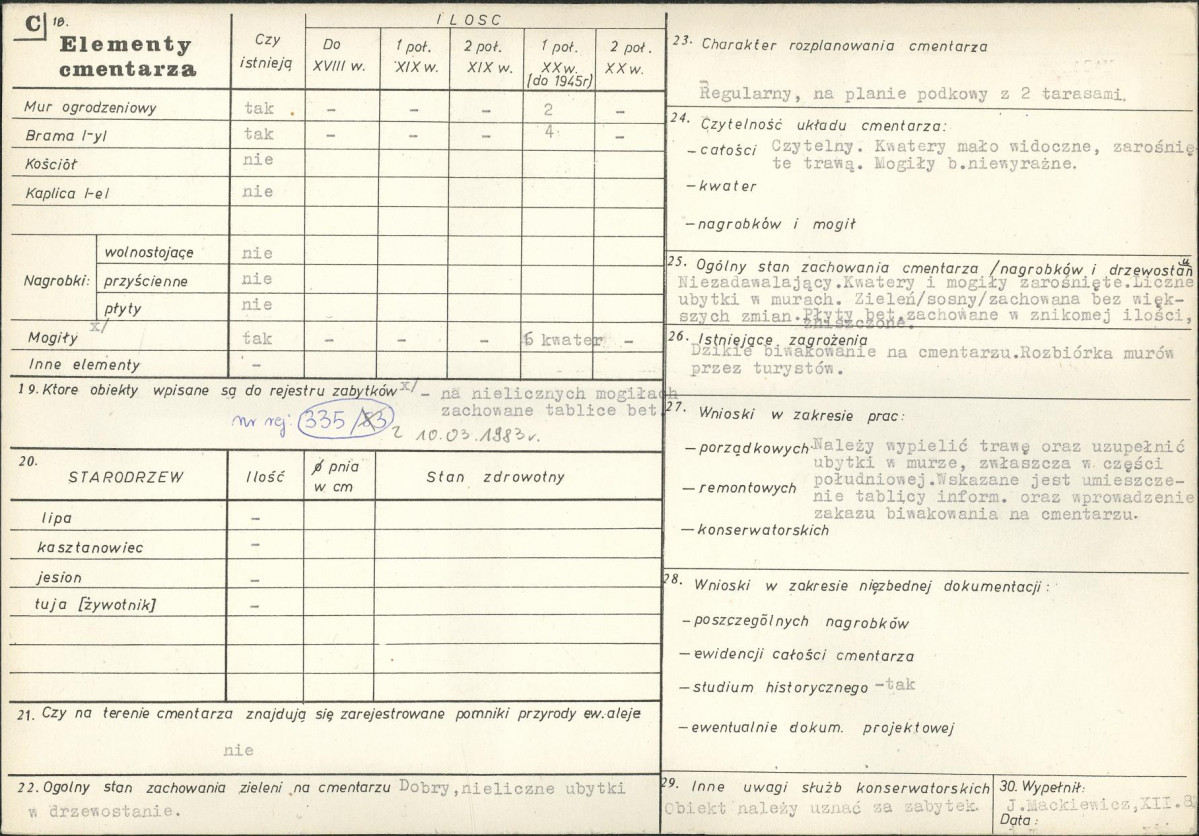 C 18.
Elementy
cmentarza
Czy
istnieją
ILOSC
Do
XVIII w.
1 poł.
XIX w.
2 poł.
XIX w.
1 poł.
XX w.
[do 1945r]
2 poł.
XX w.
Mur ogrodzeniowy tak - - - 2 -
Brama l-yl tak - - - 4 -
Kościół nie
Kaplica l-el nie
Nagrobki:
wolnostojące nie
przyścienne nie
płyty nie
x/
Mogiły tak - - - 6 kwater -
Inne elementy -
19. Ktore obiekty wpisane są do rejestru zabytków x/ - na nielicznych mogiłach
zachowane tablice bet.
nr rej: 335/83 z 10.03.1983r.
20.
STARODRZEW
Ilość
ø pnia
w cm
Stan zdrowotny
lipa -
kasztanowiec -
jesion -
tuja [żywotnik] -
21. Czy na terenie cmentarza znajdują się zarejestrowane pomniki przyrody ew. aleje
nie
22. Ogolny stan zachowania zieleni na cmentarzu Dobry,nieliczne ubytki
w drzewostanie.
23. Charakter rozplanowania cmentarza
Regularny, na planie podkowy z 2 tarasami.
24. Czytelność układu cmentarza:
- całości Czytelny. Kwatery mało widoczne, zarośnię-
te trawą. Mogiły b.niewyraźne.
- kwater
- nagrobków i mogił
25. Ogólny stan zachowania cmentarza /nagrobków i drzewostanu
Niezadawalający.Kwatery i mogiły zarośnięte.Liczne
ubytki w murach. Zieleń/sosny/zachowana bez więk-
szych zmian.Płyty bet.zachowane w znikomej ilości,
zniszczone.
26. Istniejące zagrożenia
Dzikie biwakowanie na cmentarzu.Rozbiórka murów
przez turystów.
27. Wnioski w zakresie prac:
- porządkowych Należy wypielić trawę oraz uzupełnić
ubytki w murze, zwłaszcza w części
południowej.Wskazane jest umieszcze-
- remontowych
nie tablicy inform. oraz wprowadzenie
zakazu biwakowania na cmentarzu.
- konserwatorskich
28. Wnioski w zakresie nięzbednej dokumentacji:
- poszczególnych nagrobków
- ewidencji całości cmentarza
- studium historycznego -tak
- ewentualnie dokum. projektowej
29. Inne uwagi służb konserwatorskich
Obiekt należy uznać za zabytek.
30. Wypełnił:
J.Mackiewicz,XII.8
Data: